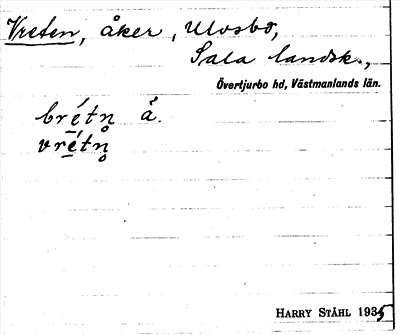 Vreten, åker, Ulvsbo,
Sala landsk.,
Övertjurbo hd, Västmanlands län.
brétn̥ å.
vrétn̥
HARRY STÅHL 1935